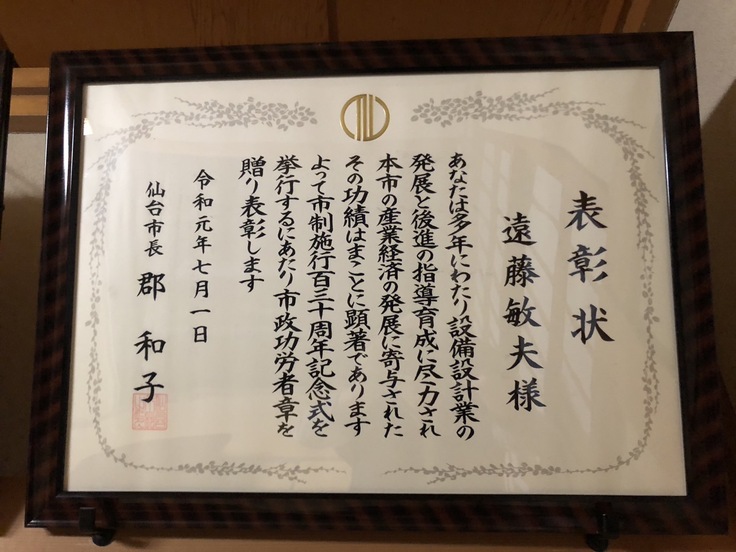 表彰状
遠藤敏夫様
あなたは多年にわたり設備設計業の
発展と後進の指導育成に尽力され
本市の産業経済の発展に寄与された
その功績はまことに顕著であります
よって市制施行百三十周年記念式を
挙行するにあたり市政功労者章を
贈り表彰します
令和元年七月一日
仙台市長 郡和子